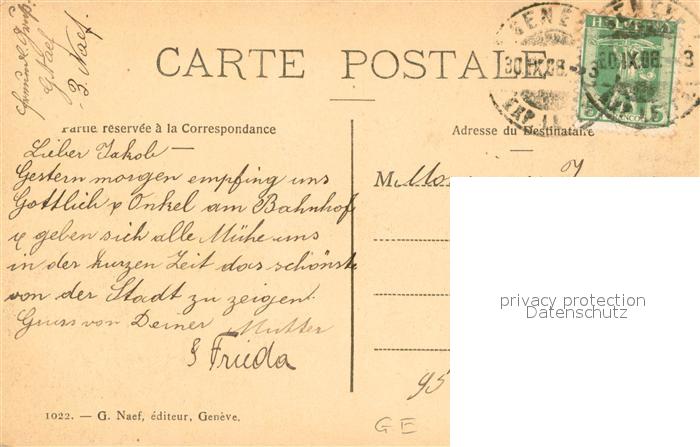 G Naef
B. Naef
CARTE POSTALE
HELVETIA
GENÈVE
30.IX.08.-3
EXP. LETT.
5
Partie réservée à la Correspondance
Adresse du Destinataire
Lieber Jakob —
Gestern morgen empfing uns
Gottlich & Onkel am Bahnhof
& geben sich alle Mühe uns
in der kurzen Zeit das schönste
von der Stadt zu zeigen.
Gruss von Deiner Mutter
& Frieda
M
privacy protection
Datenschutz
95
1022. — G. Naef, éditeur, Genève.
GE